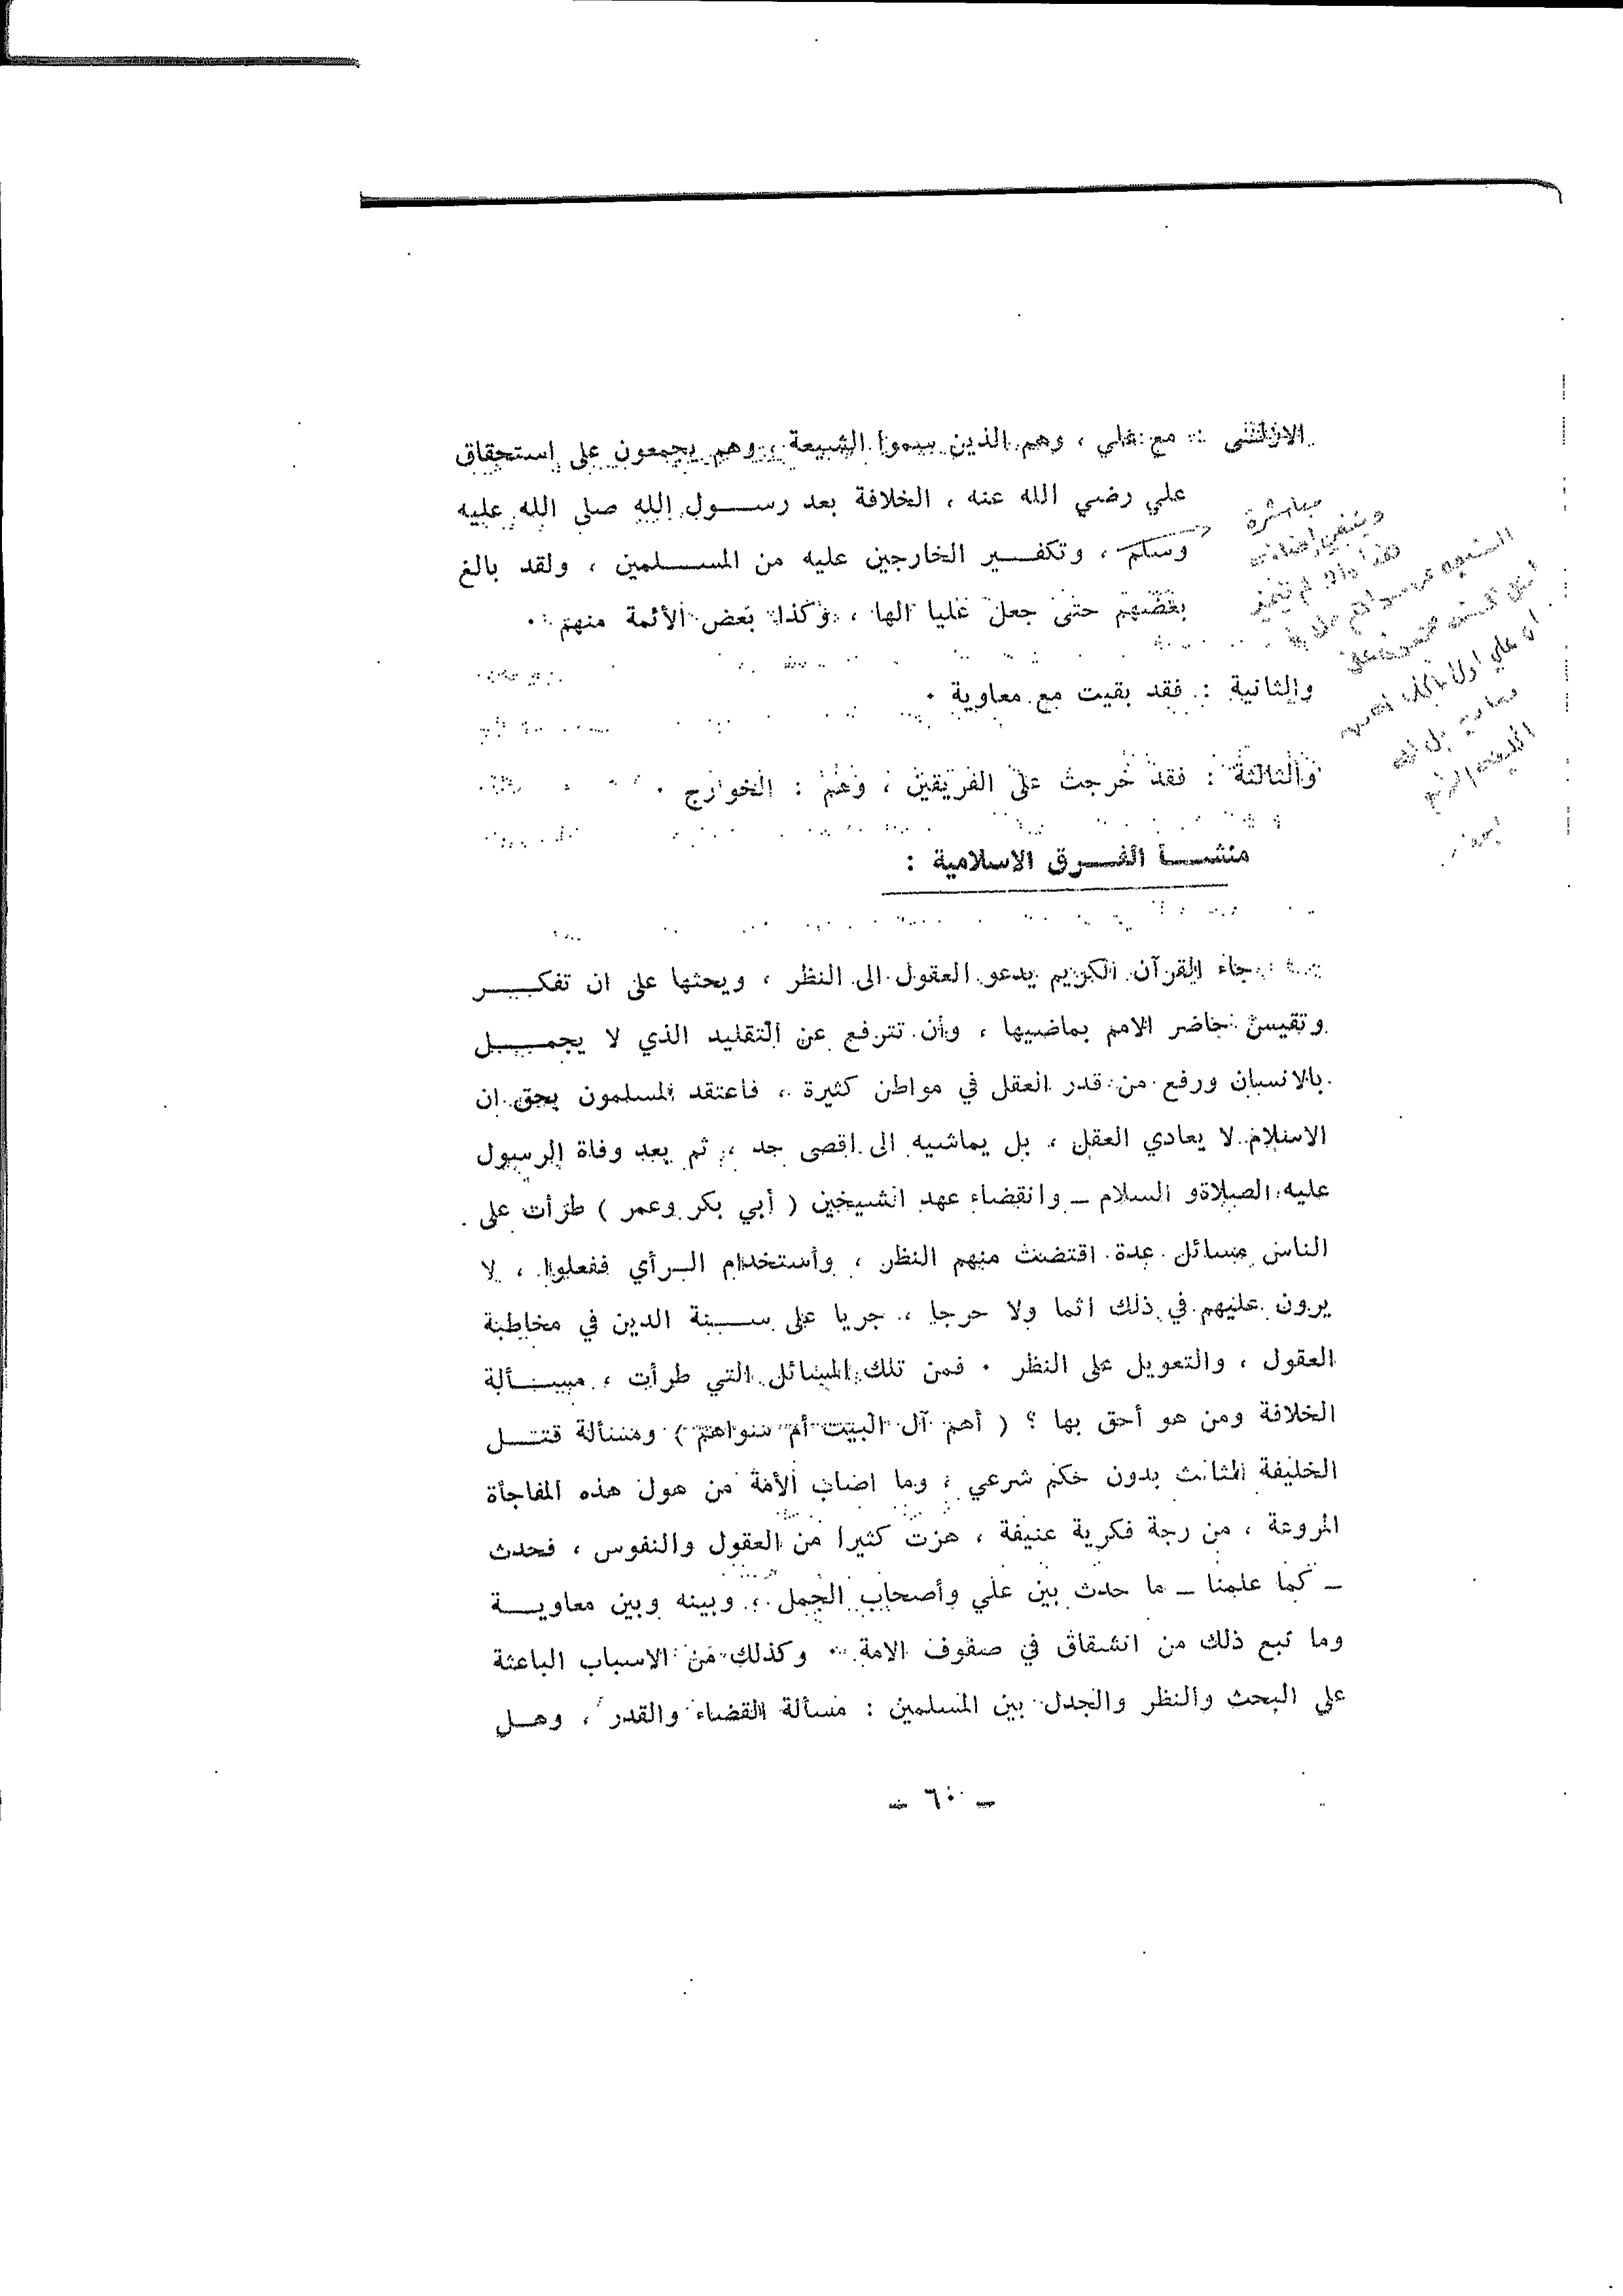 الاولى : مع علي ، وهم الذين سموا الشيعة ، وهم يجمعون على استحقاق
علي رضي الله عنه ، الخلافة بعد رسول الله صلى الله عليه
وسلم ، وتكفير الخارجين عليه من المسلمين ، ولقد بالغ
بعضهم حتى جعل عليا الها ، وكذا بعض الأئمة منهم ٠
مباشرة
وينبغي
هذا
والثانية : فقد بقيت مع معاوية ٠
والثالثة : فقد خرجت على الفريقين ، وهم : الخوارج ٠
منشأ الفرق الاسلامية :
جاء القرآن الكريم يدعو العقول الى النظر ، ويحثها على ان تفكر
وتقيس حاضر الامم بماضيها ، وأن تترفع عن التقليد الذي لا يجمل
بالانسان ورفع من قدر العقل في مواطن كثيرة ، فاعتقد المسلمون بحق ان
الاسلام لا يعادي العقل ، بل يماشيه الى اقصى حد ، ثم بعد وفاة الرسول
عليه الصلاةو السلام ـ وانقضاء عهد الشيخين ( أبي بكر وعمر ) طرأت على
الناس مسائل عدة اقتضت منهم النظر ، وأستخدام الرأي ففعلوا ، لا
يرون عليهم في ذلك اثما ولا حرجا ، جريا على سنة الدين في مخاطبة
العقول ، والتعويل على النظر ٠ فمن تلك المسائل التي طرأت ، مسألة
الخلافة ومن هو أحق بها ؟ ( أهم آل البيت أم سواهم ) ومسألة قتل
الخليفة الثالث بدون حكم شرعي ، وما اصاب الأمة من هول هذه المفاجأة
المروعة ، من رجة فكرية عنيفة ، هزت كثيرا من العقول والنفوس ، فحدث
ـ كما علمنا ـ ما حدث بين علي وأصحاب الجمل ، وبينه وبين معاوية
وما تبع ذلك من انشقاق في صفوف الامة ٠ وكذلك من الاسباب الباعثة
على البحث والنظر والجدل بين المسلمين : مسألة القضاء والقدر ، وهل
ـ ٦٠ ـ